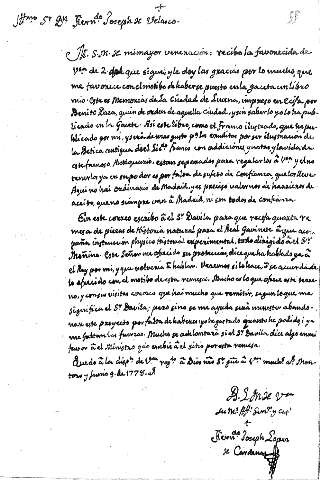 +
Illmo. Sr. Dn. Fernando Joseph de Velasco
M. S. M. de mi mayor veneracion: recibo la favorecida de
Vsa. de 2. del que sigue, y le doy las gracias por lo mucho que
me favorece con el motibo de haberse puesto en la gaceta un libro
mio. Este es Memorias de la Ciudad de Lucena, impreso en Ecija por
Benito Daza, quien de orden de aquella Ciudad, y sin saberlo yo lo ha pu-
blicado en la Gaceta. Asi este libro, como el Franco ilustrado, que he pu-
blicado por mi, y servira de mas gusto por lo conducir por ser ilustracion de
la Betica antigua del Sr. Franco con addiciones, y notas, y la vida de
este famoso Antiquario. estan reservados para regalarlos a Vsa. y el no
tenerlos ya en su poder es por falta de sujeto de confianza, que los lleve
Aqui no hai ordinario de Madrid, y es preciso valernos de harrieros de
aceite, que no siempre van a Madrid, ni son todos de confianza.
En este correo escribo al Sr. Davila para que recoja quarta re-
mesa de piezas de Historia natural para el Real Gavinete à que acom-
paña instruccion physico Historial experimental, todo dirigido al Sr.
Moñino. Este Señor me ofrecio su proteccion, dice que ha hablado ya à
el Rey por mi, y que volveria a hablar. Veremos si lo hace, ò se acuerda de
lo ofrecido con el motibo de esta remesa. Mucho es lo que ofrece este terre-
no, y como visitas conozco que hai mucho que remitir, segun lo que me
significa el Sr. Davila; pero sino se me ayuda será menester abando-
nar este proyecto por falta de haberes; yo he gastado quanto he podido; y a
me faltan las fuerzas. Mucho se adelantaria si el Sr. Davila dice algo en mi
favor à el Ministro que escribi a el sitio por esta remesa.
Quedo à la dispn. de Vsa. rogdo. à Dios nro. Sr. gue. à Vsa. muchos as. Mon-
toro y Junio 9. de 1778. as.
B. L. M. de Vsa.
su Ms. Affo. Servr. y Capn.
+
Fernndo. Joseph Lopez
de Cardenas